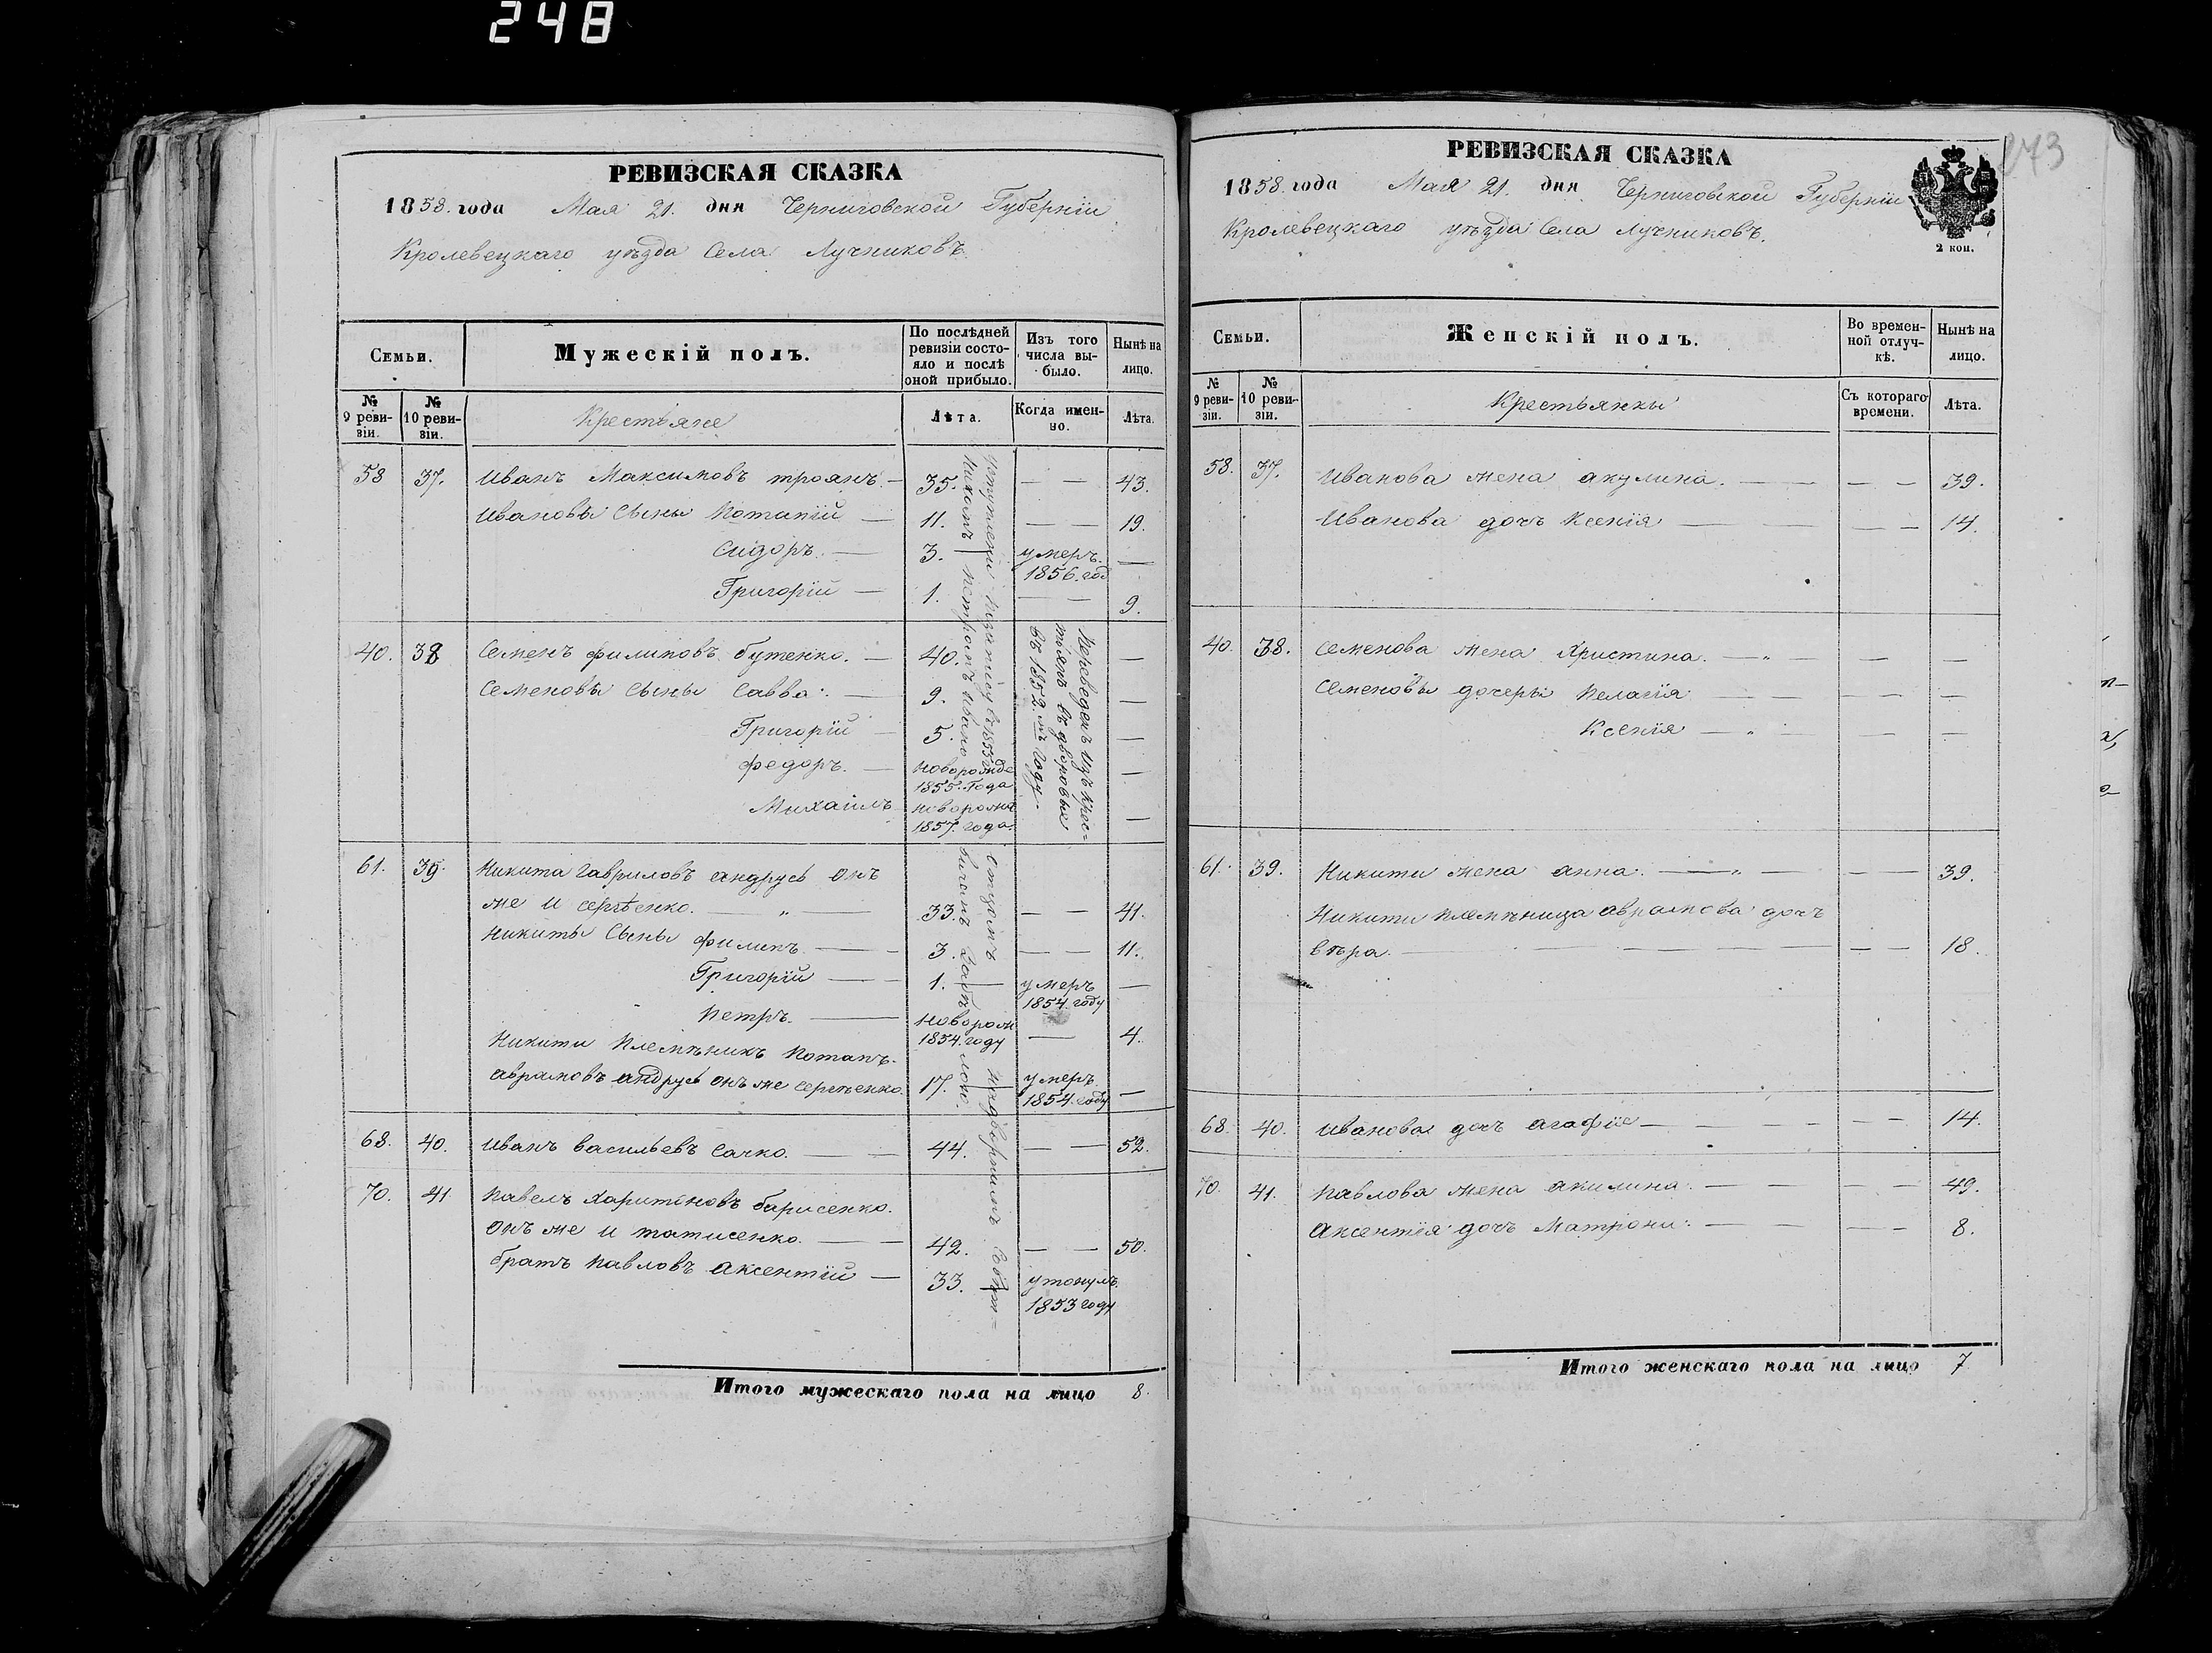 248
РЕВИЗСКАЯ СКАЗКА
1858. года Мая 21. дня Черниговской Губерніи
Кролевецкаго уѣзда Села Лучниковъ.
Семьи.
Мужескій полъ.
По послѣдней ревизіи состояло и послѣ оной прибыло.
Изъ того числа выбыло.
Нынѣ на лицо.
№ 9 ревизіи.
№ 10 ревизіи.
Крестьяне
Лѣта.
Когда именно.
Лѣта.
58 37. Иванъ Максимовъ троянъ — 35. — — 43.
Ивановы Сыны Потапій — 11. — — 19.
Сидоръ. — 3. умеръ. 1856. год —
Григорій — 1. — — 9.
40. 38 Семенъ филиповъ бутенко. — 40. —
Семеновы Сыны Савва. — 9. —
Григорій — 5. —
федоръ. — новорожде 1855. года —
Михаилъ новорожд 1857. года. —
Переведенъ изъ крес=
тьянъ въ дворовыя
въ 1852. мъ Году.
61. 39. Никита Гавриловъ андрусь онъ
же и сергѣенко. — „ — 33. — — 41.
Никиты Сыны филипъ — 3. — — 11.
Григорій — 1. умеръ 1854. году —
Петръ. — новорож 1854. году — 4.
Никити Племѣникъ Потапъ.
аврамовъ андрусь онъ же сергѣенко. 17. умеръ. 1854. году —
68. 40. Иванъ васильевъ Сачко. — 44. — — 52.
70. 41. Павелъ Харитоновъ барисенко.
Онъ же и татисенко. — 42. — — 50.
братъ Павловъ аксентій — 33. утонулъ. 1853 году
Итого мужескаго пола на лицо 8.
273
РЕВИЗСКАЯ СКАЗКА
1858. года Мая 21. дня Черниговской Губерніи
Кролевецкаго уѣзда Села Лучниковъ.
2 коп.
Семьи.
Женскій полъ.
Во временной отлучкѣ.
Нынѣ на лицо.
№ 9 ревизіи.
№ 10 ревизіи.
Крестьянки
Съ котораго времени.
Лѣта.
58. 37. Иванова жена акулина. — — — — 39.
Иванова дочь Ксенія — — — 14.
40. 38. Семенова жена Христина. — „ — — —
Семеновы дочеры Пелагія — — —
Ксенія — „ — — —
61. 39. Никити жена анна. — „ — — — 39.
Никити племѣница аврамова дочь
вѣра. — — — — — 18.
68. 40. Иванова дочь агафіе — — — — — 14.
70. 41. Павлова жена акилина. — — — — 49.
Аксентія дочь Матрони. — — — — 8.
Итого женскаго пола на лицо 7